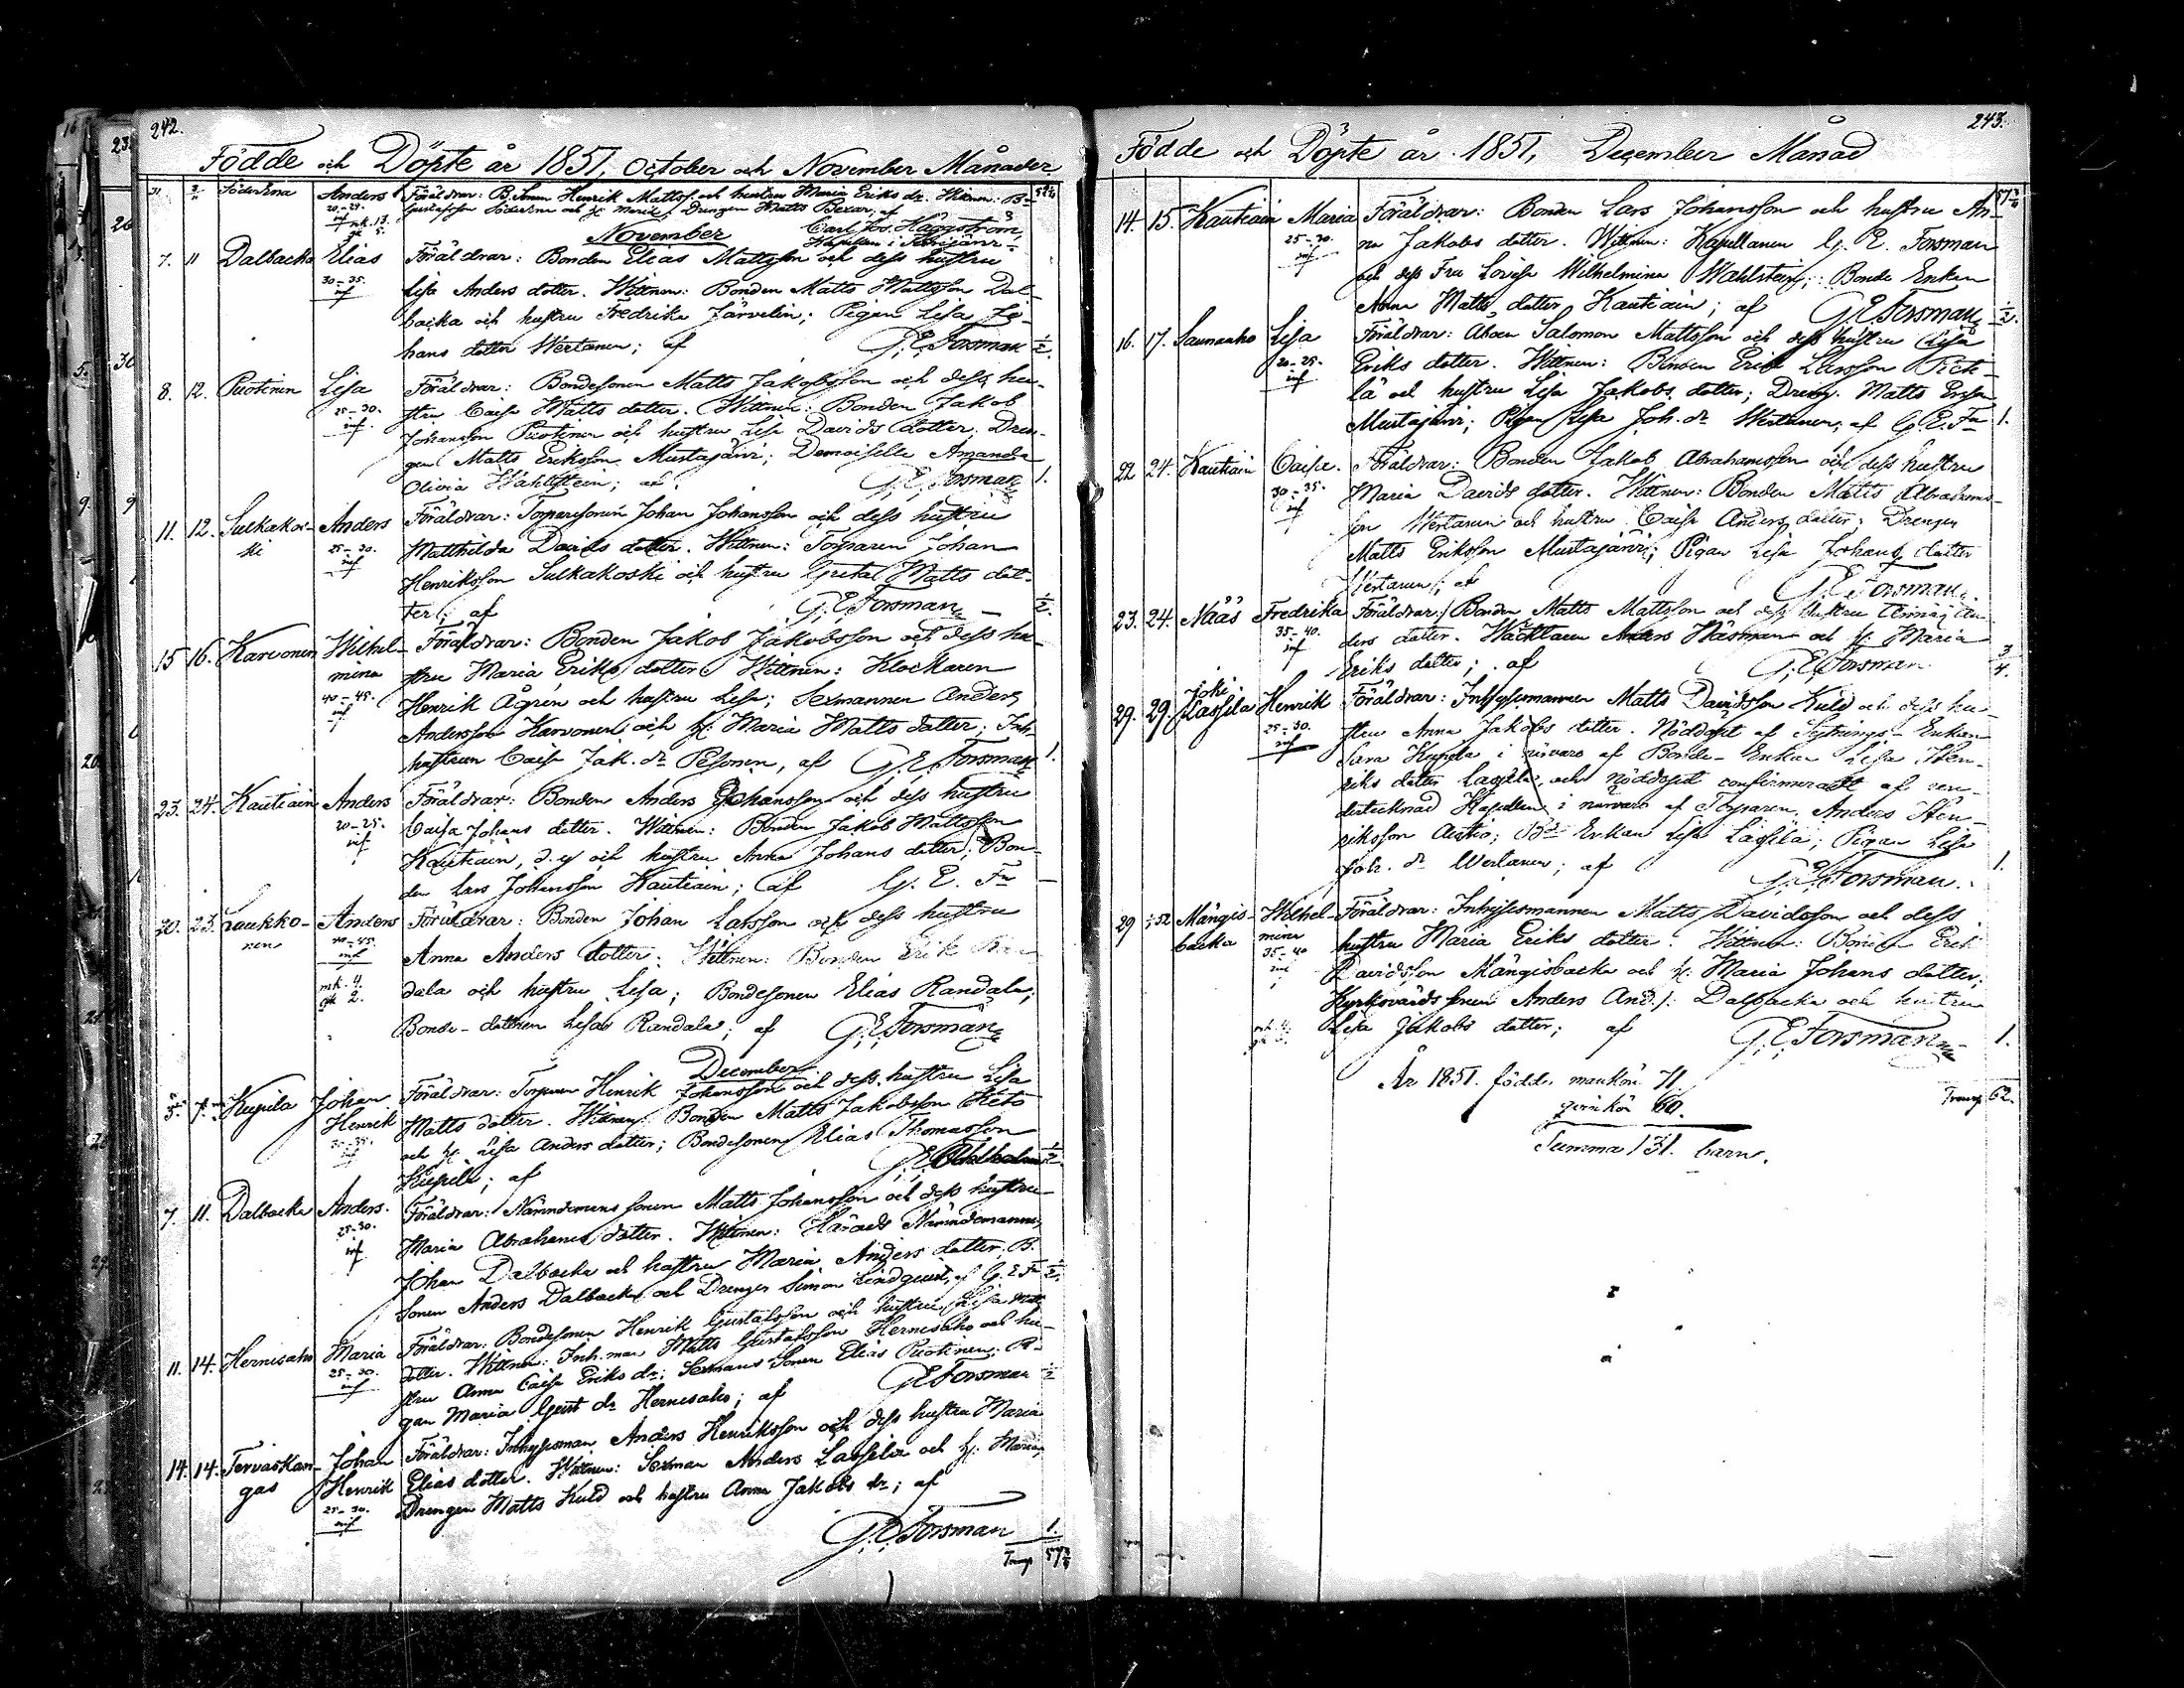 242.
Födde och Döpte år 1851, October och November Månader
31. Söderena Anders Föräldrar: B. Sonen Henrik Mattss. och hustru Maria Eriks dr. Wittnen: B-
20-25. Gustafsson Söderena och h: Maria; Drengen Matts Bexar; af
inf mk. 13. Carl Jos. Häggström
gk 5. Kapellan i Kivijärvi
November
7. 11 Dalbacka Elias Föräldrar: Bonden Elias Mattsson och dess hustru
30-35. Lisa Anders dotter. Wittnen: Bonden Matts Mattsson Dal-
inf backa och hustru Fredrika Järvelin; Pigan Lisa Jo-
hans dotter Wertanen; af G. E. Forsman 1/2.
8. 12. Puotinen Lisa Föräldrar: Bondesonen Matts Jakobsson och dess hu-
25-30. stru Caisa Matts dotter. Wittnen: Bonden Jakob
inf. Johansson Puotinen och hustru Lisa Davids dotter; Dren-
gen Matts Eriksson Mustajärvi; Demoiselle Amanda
Olivia Wahlstein; af G. E. Forsman 1.
11. 12. Sulkakos- Anders Föräldrar: Torparesonen Johan Johansson och dess hustru
ki 25-30. Matthilda Davids dotter. Wittnen: Torparen Johan
inf Henriksson Sulkakoski och hustru Greta Matts dot-
ter; af G. E. Forsman 1/2.
15 16. Karvonen Wilhel- Föräldrar: Bonden Jakob Jakobsson och dess hu-
mina stru Maria Eriks dotter. Wittnen: Klockaren
40-45. Henrik Ågrén och hustru Lisa; Sexmannen Anders
inf Andersson Karvonen och h: Maria Matts dotter; Inh.
hustrun Caisa Jak. dr Pesonen, af G. E. Forsman 1.
23. 24. Kautiain Anders Föräldrar: Bonden Anders Johansson och dess hustru
20-25. Caisa Johans dotter. Wittnen: Bonden Jakob Mattsson
inf Kautiain, d. y. och hustru Anna Johans dotter; Bon-
den Lars Johansson Kautiain; af G. E. Fn —
20. 23. Laukko- Anders Föräldrar: Bonden Johan Larsson och dess hustru
nen 40-45. Anna Anders dotter. Wittnen: Bonden Erik Ran
inf
mk. 4. dala och hustru Lisa; Bondesonen Elias Randala;
gk 2. Bonde-dottren Lisa Randala; af G. E. Forsman
December.
5. 7. Kujala Johan Föräldrar: Torparen Henrik Johansson och dess hustru Lisa
Henrik Matts dotter. Wittnen: Bonden Matts Jakobsson Keto
30-35. och h: Lisa Anders dotter; Bondesonen Elias Thomasson
inf Kujala; af 1/2
7. 11. Dalbacka Anders. Föräldrar: Nämndemans sonen Matts Johansson och dess hustru
25-30. Maria Abrahams dotter. Wittnen: Härads Nämndemannen
inf Johan Dalbacka och hustru Maria Anders dotter; B.
sonen Anders Dalbacka och Drengen Simon Lindqvist, af G. E. Fn 1/2.
11. 14. Hernesaho Maria Föräldrar: Bondesonen Henrik Gustafsson och hustru Lisa Matts
25-30. dotter. Wittnen: Inh. man Matts Gustafsson Hernesaho och hu-
inf stru Anna Caisa Eriks dr; Sexmans Sonen Elias Puotinen; Pi-
gan Maria Gust. dr Hernesaho; af G. E. Forsman 1/2
14. 14. Tervaskan- Johan Föräldrar: Inhysesman Anders Henriksson och dess hustru Maria
gas Henrik Elias dotter. Wittnen: Sexman Anders Lassila och h: Maria;
25-30. Drengen Matts Kuld och hustru Anna Jakobs dr; af
inf G. E. Forsman 1.
Transp 57 3/4
243.
Födde och Döpte år 1851, December Månad
57 3/4
14. 15. Kautiain Maria Föräldrar: Bonden Lars Johansson och hustru An-
25-30. na Jakobs dotter. Wittnen: Kapellanen G. E. Forsman
inf och dess Fru Lovisa Wilhelmina Wahlstein; Bonde Enkan
Anna Matts dotter Kautiain; af G. E. Forsman 1/2.
16. 17. Saunaaho Lisa Föräldrar: Åboen Salomon Mattsson och dess hustru Lisa
20-25. Eriks dotter. Wittnen: Bonden Erik Larsson
inf lä och hustru Lisa Jakobs dotter; Dreng. Matts Erss.
Mustajärvi; Pigan Lisa Joh. dr Wertanen; af G. E. Fn 1.
22 24. Kautiain Caisa. Föräldrar: Bonden Jakob Abrahamsson och dess hustru
30-35. Maria Davids dotter. Wittnen: Bonden Matts Abrahams-
inf son Wertanen och hustru Caisa Anders dotter; Drengen
Matts Eriksson Mustajärvi; Pigan Lisa Johans dotter
Wertanen; af G. E. Forsman.
23. 24. Näås Fredrika Föräldrar: Bonden Matts Mattsson och dess hustru Anna An-
35-40. ders dotter. Wäcktaren Anders Wäsman och h: Maria
inf Eriks dotter; af G. E. Forsman 3/4.
29. 29. Joki Lassila Henrik Föräldrar: Inhysesmannen Matts Davidsson Kuld och dess hu-
25-30. stru Anna Jakobs dotter. Nöddöpt af Sytnings-Enkan
inf Sara Kujala i närvaro af Bonde-Enkan Lisa Hen-
riks dotter Lassila, och nöddopet confirmeradt af un-
dertecknad Kapellan i närvaro af Torparen Anders Hen-
riksson Autio; Bde Enkan Lisa Lassila; Pigan Lisa
Joh. dr Wertanen; af G. E. Forsman. 1.
29 Mångis- Wilhel- Föräldrar: Inhysesmannen Matts Davidsson och dess
backa mina hustru Maria Eriks dotter. Wittnen: Bonden Erik
35-40 Davidsson Mångisbacka och h: Maria Johans dotter;
inf Kyrkovärds sonen Anders And.s: Dalbacka och hustru
mk. 4. Lisa Jakobs dotter; af G. E. Forsman 1.
År 1851. födde mankön 71.
qvinkön 60. Transp 62.
Summa 131. barn.